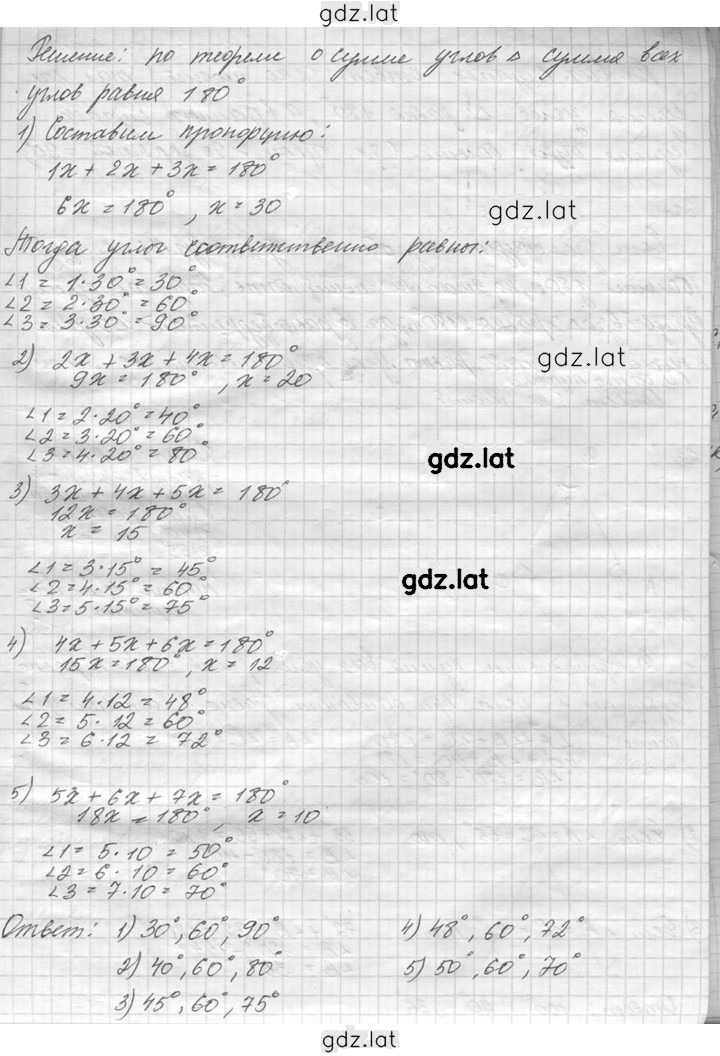 gdz.lat
Решение: по теореме о сумме углов △ сумма всех
углов равна 180°
1) Составим пропорцию:
1x + 2x + 3x = 180°
6x = 180°, x = 30
gdz.lat
Тогда углы соответственно равны:
∠1 = 1·30° = 30°
∠2 = 2·30° = 60°
∠3 = 3·30° = 90°
2) 2x + 3x + 4x = 180°
gdz.lat
9x = 180°, x = 20
∠1 = 2·20° = 40°
∠2 = 3·20° = 60°
∠3 = 4·20° = 80°
gdz.lat
3) 3x + 4x + 5x = 180°
12x = 180°
x = 15
∠1 = 3·15° = 45°
gdz.lat
∠2 = 4·15° = 60°
∠3 = 5·15° = 75°
4) 4x + 5x + 6x = 180°
15x = 180°, x = 12
∠1 = 4·12 = 48°
∠2 = 5·12 = 60°
∠3 = 6·12 = 72°
5) 5x + 6x + 7x = 180°
18x = 180°, x = 10
∠1 = 5·10 = 50°
∠2 = 6·10 = 60°
∠3 = 7·10 = 70°
Ответ: 1) 30°, 60°, 90° 4) 48°, 60°, 72°
2) 40°, 60°, 80° 5) 50°, 60°, 70°
3) 45°, 60°, 75°
gdz.lat